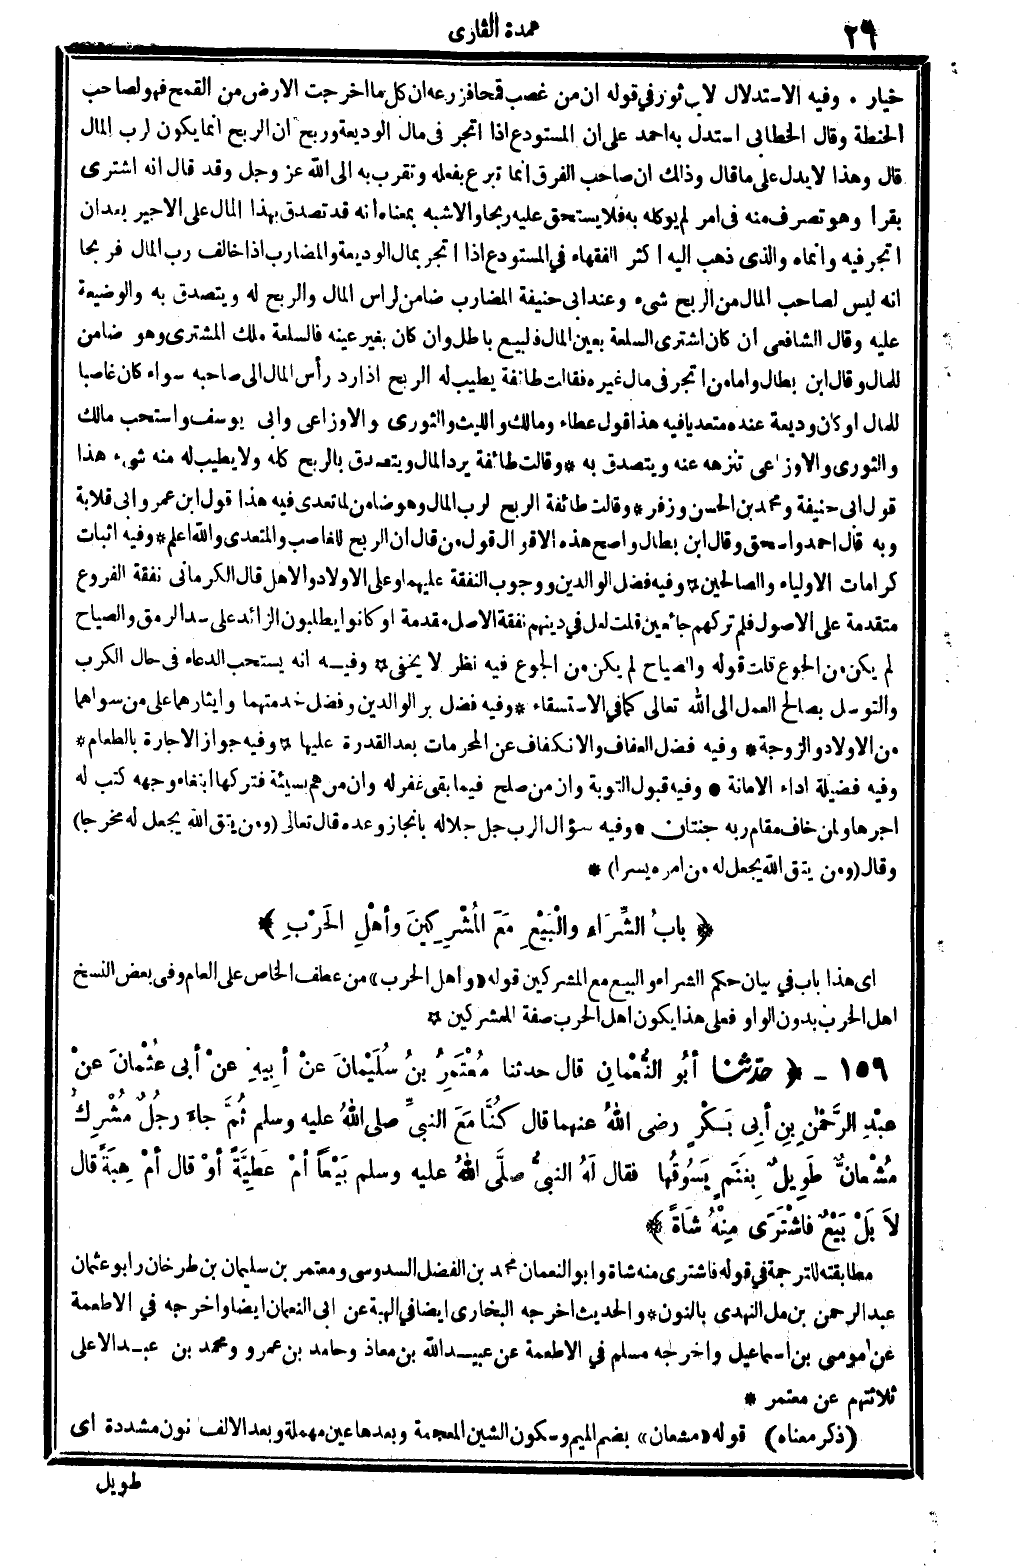 ٢٦ عمدة القارى
خيار ۰ وفيه الاستدلال لابى ثور فى قوله ان من غصب قمحا فزرعه ان كل ما اخرجت الارض من القمح فهو لصاحب
الحنطة وقال الخطابى استدل به احمد على ان المستودع اذا اتجر فى مال الوديعة وربح ان الربح انما يكون لرب المال
قال وهذا لا يدل على ما قال وذلك ان صاحب الفرق انما تبرع بفعله وتقرب به الى الله عز وجل وقد قال انه اشترى
بقرا وهو تصرف منه فى امر لم يوكله به فلا يستحق عليه ربحا والاشبه بمعناه انه قد تصدق بهذا المال على الاجير بعد ان
اتجر فيه وانماه والذى ذهب اليه اكثر الفقهاء فى المستودع اذا اتجر بمال الوديعة والمضارب اذا خالف رب المال فربحا
انه ليس لصاحب المال من الربح شىء وعند ابى حنيفة المضارب ضامن لراس المال والربح له ويتصدق به والوضيعة
عليه وقال الشافعى ان كان اشترى السلعة بعين المال فالبيع باطل وان كان بغير عينه فالسلعة ملك المشترى وهو ضامن
للمال وقال ابن بطال واما من اتجر فى مال غيره فقالت طائفة يطيب له الربح اذا رد رأس المال الى صاحبه سواء كان غاصبا
للمال او كان وديعة عنده متعديا فيه هذا قول عطاء ومالك والليث والثورى والاوزاعى وابى يوسف واستحب مالك
والثورى والاوزاعى تنزهه عنه ويتصدق به * وقالت طائفة يرد المال ويتصدق بالربح كله ولا يطيب له منه شىء هذا
قول ابى حنيفة ومحمد بن الحسن وزفر * وقالت طائفة الربح لرب المال وهو ضامن لما تعدى فيه هذا قول ابن عمر وابى قلابة
وبه قال احمد واسحق وقال ابن بطال واصح هذه الاقوال قول من قال ان الربح للغاصب والمتعدى والله اعلم * وفيه اثبات
كرامات الاولياء والصالحين ☆ وفيه فضل الوالدين ووجوب النفقة عليهما وعلى الاولاد والاهل قال الكرمانى نفقة الفروع
متقدمة على الاصول فلم تركهم جائعين قلت لعل فى دينهم نفقة الاصل مقدمة او كانوا يطلبون الزائد على سد الرمق والصياح
لم يكن من الجوع قلت قوله والصياح لم يكن من الجوع فيه نظر لا يخفى ☆ وفيه انه يستحب الدعاء فى حال الكرب
والتوسل بصالح العمل الى الله تعالى كما فى الاستسقاء * وفيه فضل بر الوالدين وفضل خدمتهما وايثارهما على من سواهما
من الاولاد والزوجة * وفيه فضل العفاف والانكفاف عن المحرمات بعد القدرة عليها ☆ وفيه جواز الاجارة بالطعام *
وفيه فضيلة اداء الامانة * وفيه قبول التوبة وان من صلح فيما بقى غفر له وان من هم بسيئة فتركها ابتغاء وجهه كتب له
اجرها ولمن خاف مقام ربه جنتان * وفيه سؤال الرب جل جلاله بانجاز وعده قال تعالى (ومن يتق الله يجعل له مخرجا)
وقال (ومن يتق الله يجعل له من امره يسرا) *
﴿ بابُ الشِّرَاءِ والْبَيْعِ مَعَ المُشْرِكِينَ وأهْلِ الحَرْبِ ﴾
اى هذا باب فى بيان حكم الشراء والبيع مع المشركين قوله «واهل الحرب» من عطف الخاص على العام وفى بعض النسخ
اهل الحرب بدون الواو فعلى هذا يكون اهل الحرب صفة للمشركين ☆
١٥٩ - ﴿ حدّثنا أبُو النُّعْمانِ قال حدثنا مُعْتَمِرُ بنُ سُلَيْمَانَ عنْ أبِيهِ عنْ أبى عُثْمانَ عنْ
عبْدِ الرَّحْمٰنِ بنِ أبِى بَكْرٍ رضى اللهُ عنهما قال كُنَّا مَعَ النبىِّ صلى اللهُ عليه وسلم ثُمَّ جاءَ رجُلٌ مُشْرِكٌ
مُشْعانٌّ طَوِيلٌ بِغَنَمٍ يَسُوقُها فقال لَهُ النبىُّ صلَّى اللهُ عليه وسلم بَيْعاً أمْ عَطِيَّةً أوْ قال أمْ هِبَةً قال
لاَ بَلْ بَيْعٌ فاشْتَرَى مِنْهُ شاةً ﴾
مطابقته للترجمة فى قوله فاشترى منه شاة وابو النعمان محمد بن الفضل السدوسى ومعتمر بن سليمان بن طرخان وابو عثمان
عبد الرحمن بن مل النهدى بالنون * والحديث اخرجه البخارى ايضا فى الهبة عن ابى النعمان ايضا واخرجه فى الاطعمة
عن موسى بن اسماعيل واخرجه مسلم فى الاطعمة عن عبيد الله بن معاذ وحامد بن عمرو ومحمد بن عبد الاعلى
ثلاثتهم عن معتمر *
(ذكر معناه) قوله «مشعان» بضم الميم وسكون الشين المعجمة وبعدها عين مهملة وبعد الالف نون مشددة اى
طويل